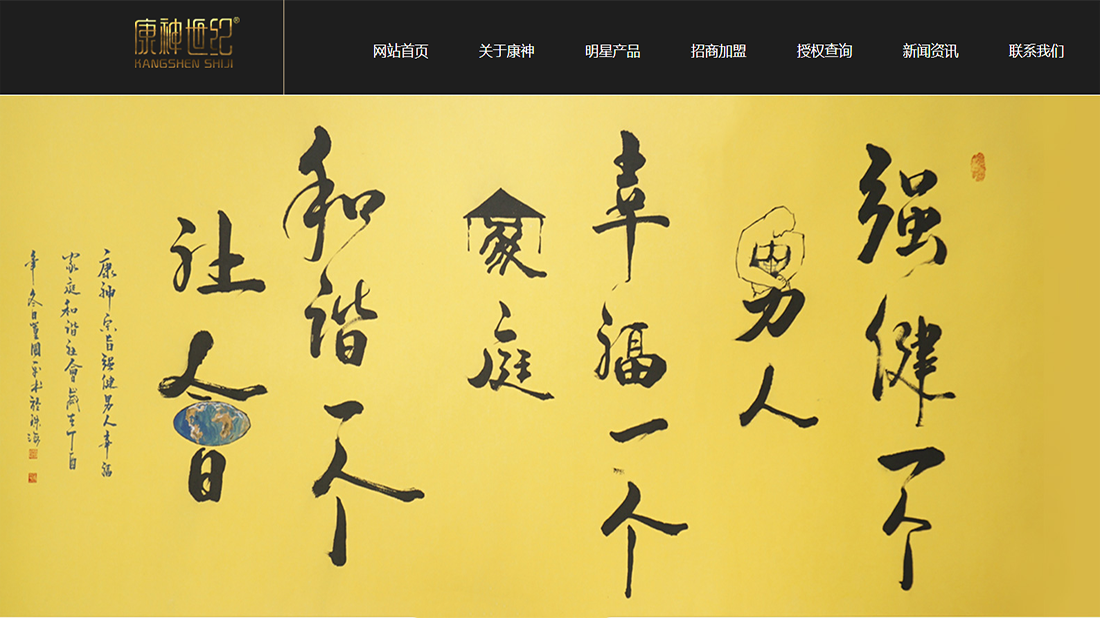 康神世纪®
KANGSHEN SHIJI
网站首页 关于康神 明星产品 招商加盟 授权查询 新闻资讯 联系我们
强健一个
男人
幸福一个
家庭
和谐一个
社会
康神宗旨强健男人幸福
家庭和谐社会岁在丁酉
年冬日董国
珠海